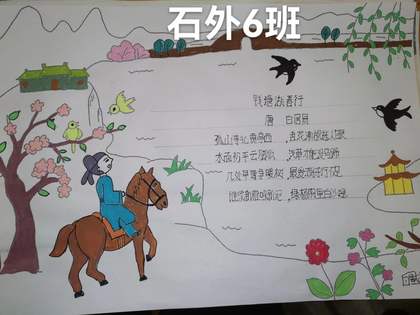 石外6班
钱塘湖春行
唐 白居易
孤山寺北贾亭西 ,乱花渐欲迷人眼
水面初平云脚低 ,浅草才能没马蹄
几处早莺争暖树 ,最爱湖东行不足
谁家新燕啄春泥 ,绿杨阴里白沙堤